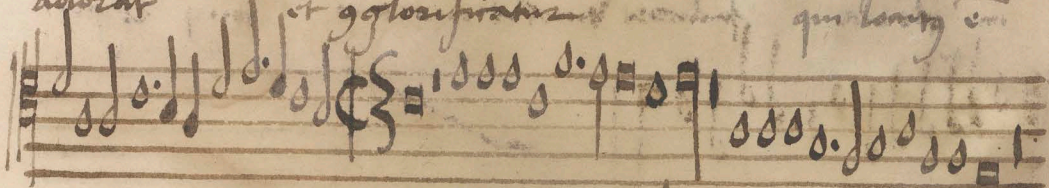 adorat et ꝯglorificatur qui locutꝯ e